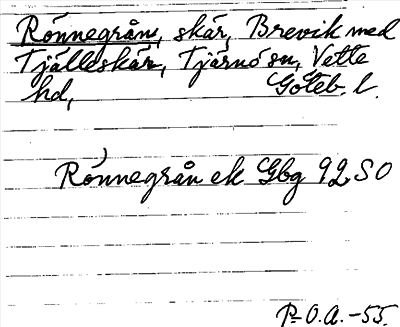 Rönnegrån, skär, Brevik med
Tjälleskär, Tjärnö sn, Vette
hd, Göteb. l.
Rönnegrån ek Gbg 92 SO
P. O. A. -55.